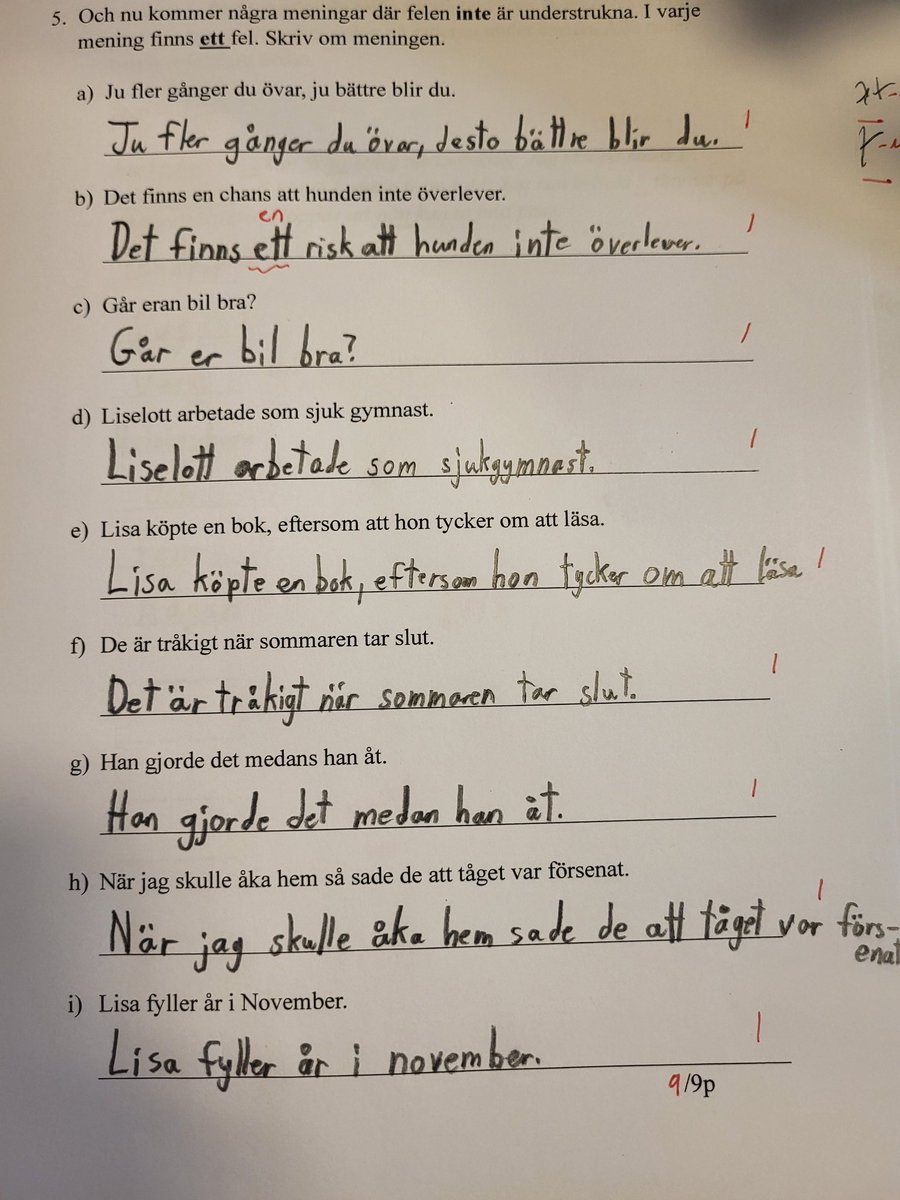 5. Och nu kommer några meningar där felen inte är understrukna. I varje
mening finns ett fel. Skriv om meningen.
a) Ju fler gånger du övar, ju bättre blir du.
Ju fler gånger du övar, desto bättre blir du. 1
b) Det finns en chans att hunden inte överlever.
en
Det finns ett risk att hunden inte överlever. 1
c) Går eran bil bra?
Går er bil bra? 1
d) Liselott arbetade som sjuk gymnast.
Liselott arbetade som sjukgymnast. 1
e) Lisa köpte en bok, eftersom att hon tycker om att läsa.
Lisa köpte en bok, eftersom hon tycker om att läsa 1
f) De är tråkigt när sommaren tar slut.
Det är tråkigt när sommaren tar slut. 1
g) Han gjorde det medans han åt.
Han gjorde det medan han åt. 1
h) När jag skulle åka hem så sade de att tåget var försenat.
När jag skulle åka hem sade de att tåget var förs- 1
enat
i) Lisa fyller år i November.
Lisa fyller år i november. 1
9/9p